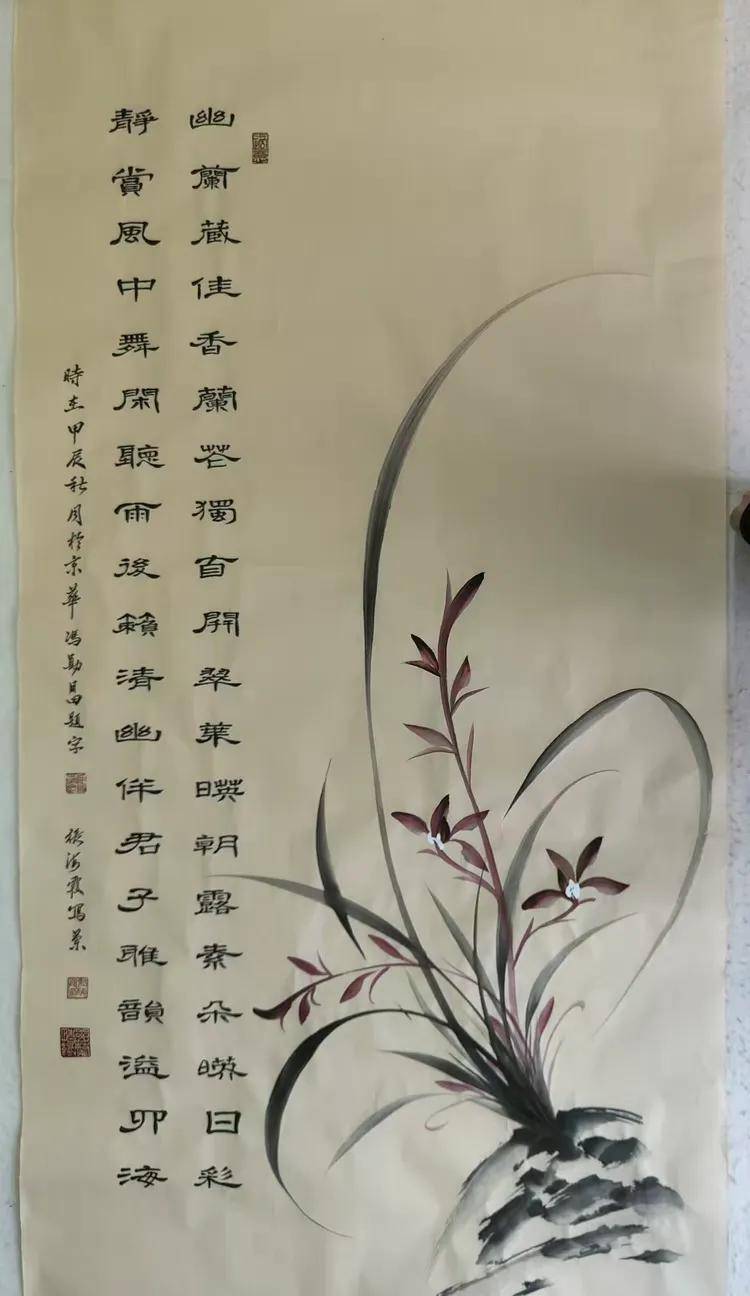 幽蘭藏佳香蘭花獨自開翠葉暎朝露素朵暎日彩
靜賞風中舞閑聽雨後籟清幽伴君子雅韻溢四海
時在甲辰秋月於京華馮勤昌題字
張海霞寫景